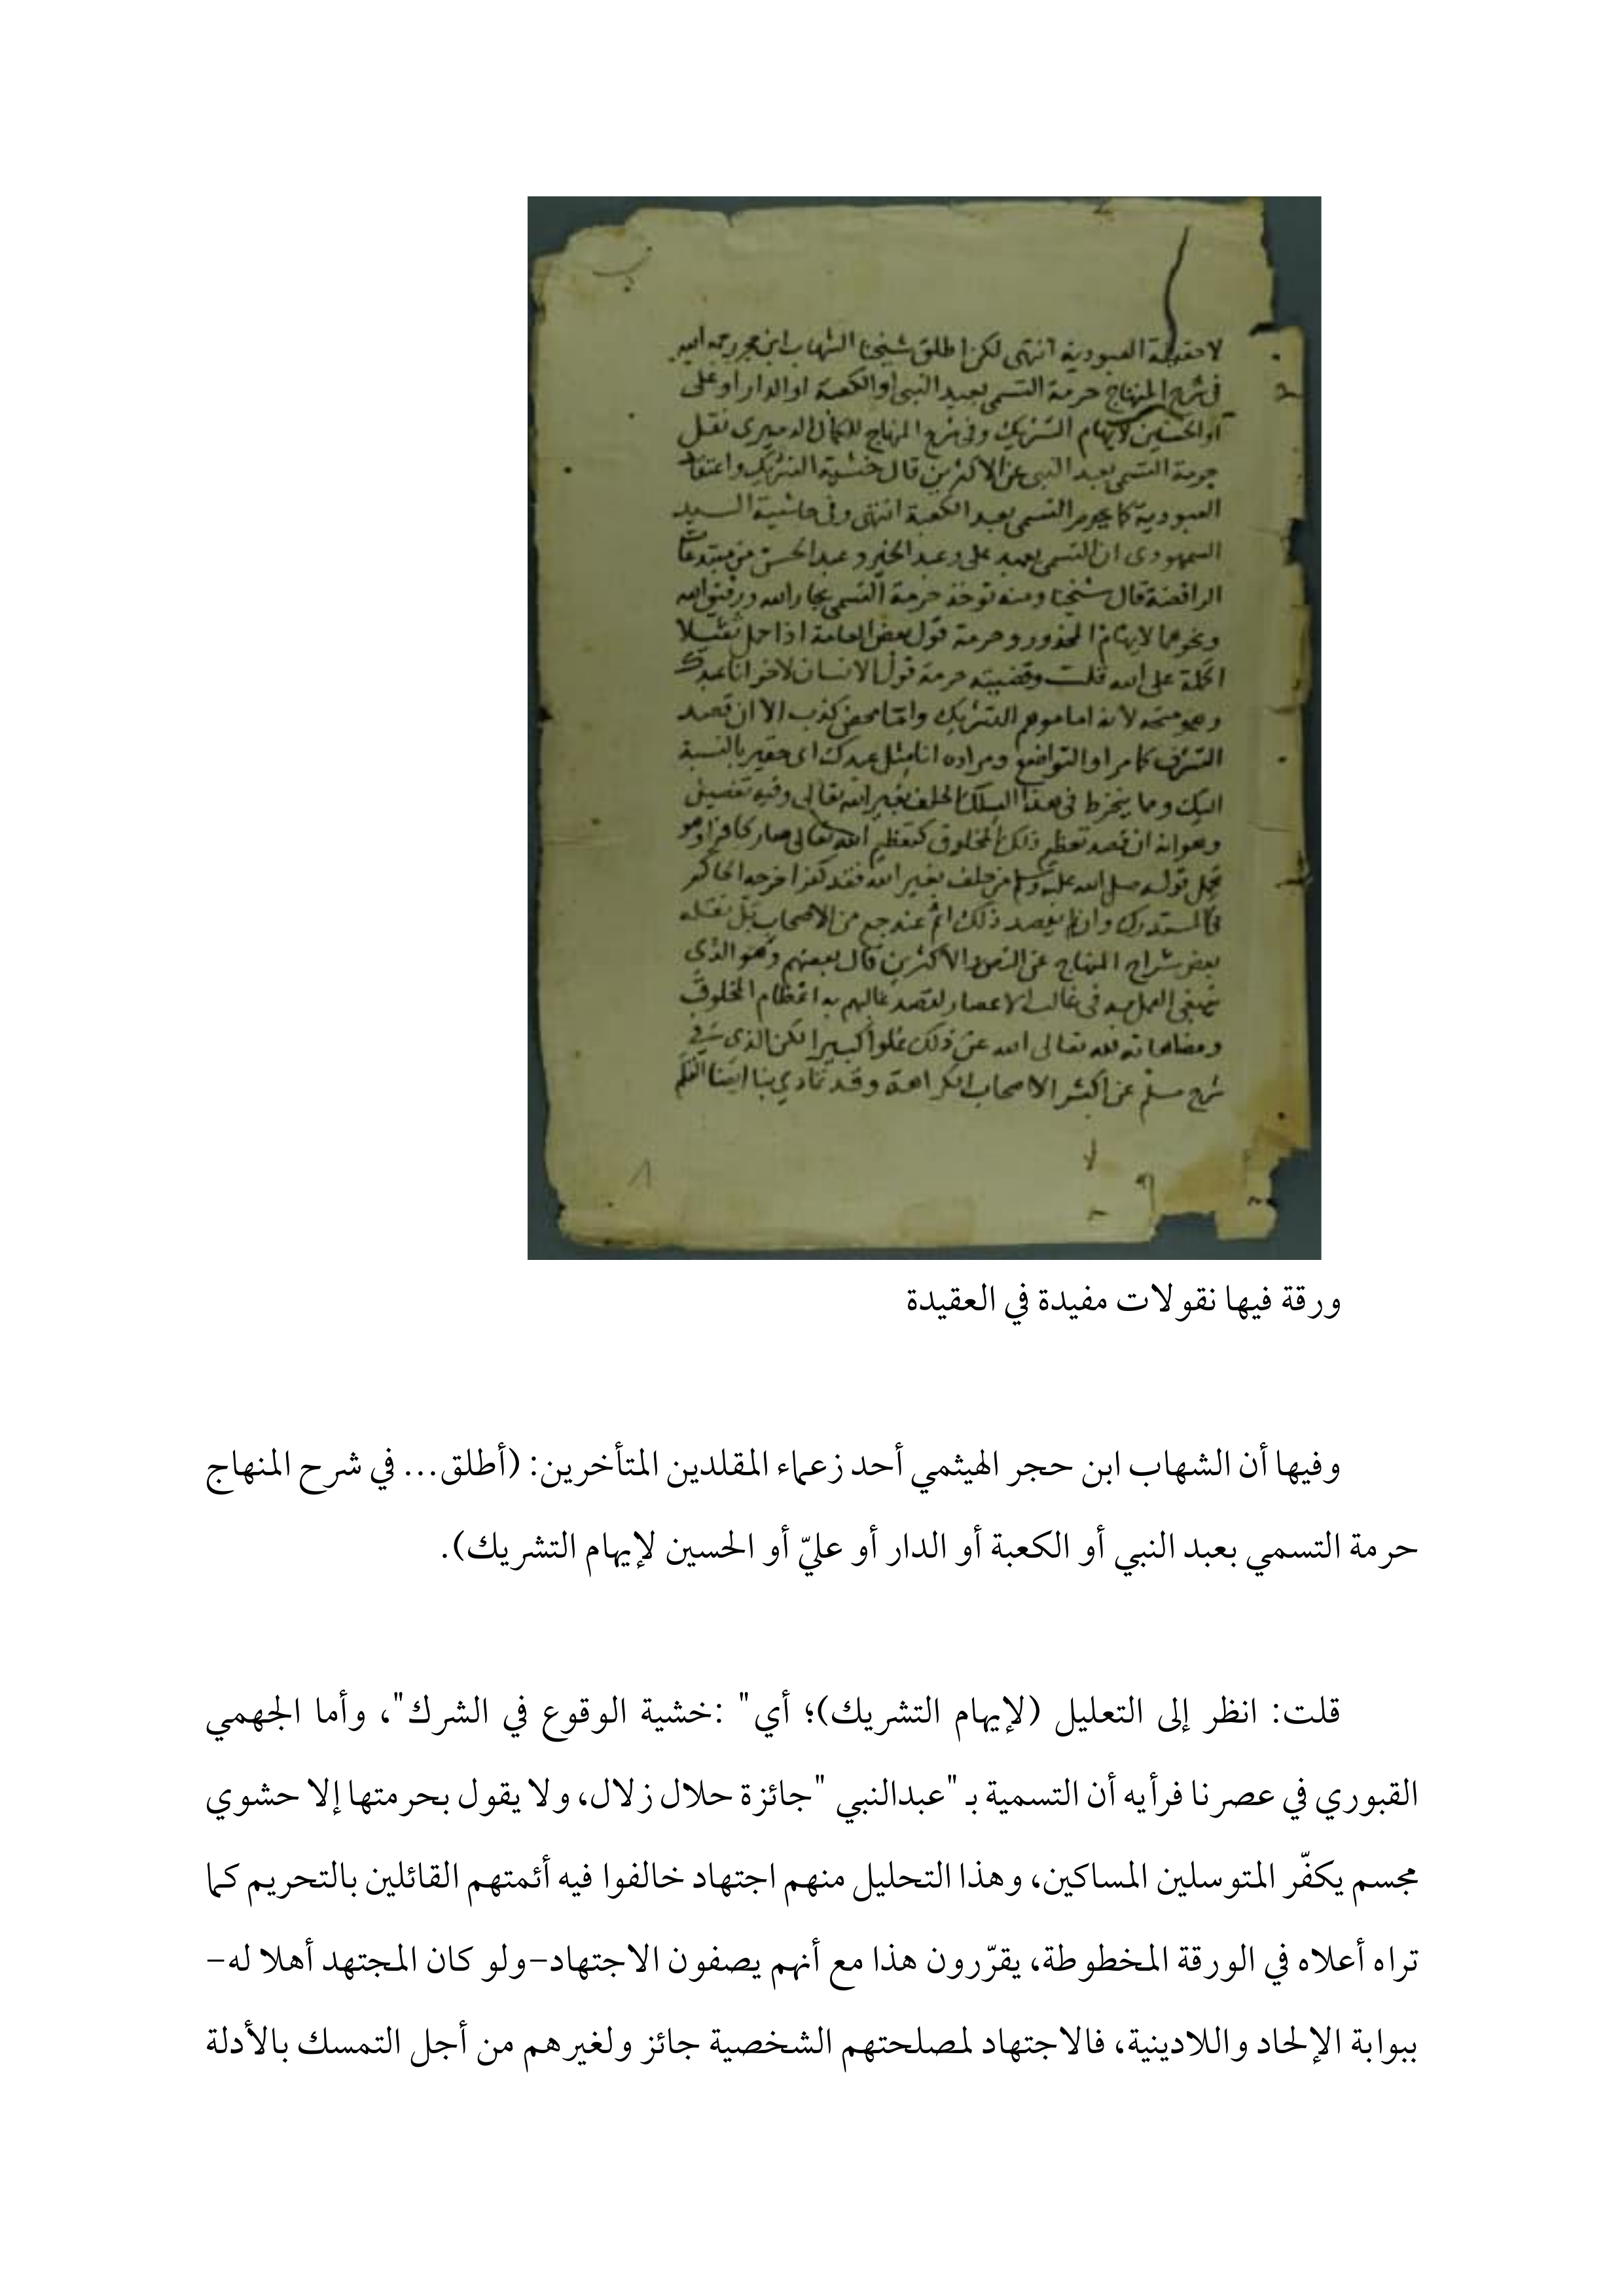 لا حقيقة العبودية انتهى لكن اطلق شيخنا الشهاب ابن حجر رحمه الله
في شرح المنهاج حرمة التسمي بعبد النبي او الكعبة او الدار او على
او الحسين لايهام التشريك وفي شرح المنهاج للكمال الدميري نقل
حرمة التسمي بعبد النبي عن الاكثرين قال خشية التشريك واعتقاد
العبودية كما يحرم التسمي بعبد الكعبة انتهى وفي حاشية السيد
السمهودى ان التسمي بعبد على وعبد الحسن من مبتدعات
الرافضة قال شيخنا ومنه توخذ حرمة التسمي بجار الله ورفيق الله
ونحوهما لايهام المحذور وحرمة قول بعض العامة اذا حمل ثقيلا
الحملة على الله قلت وقضيته حرمة قول الانسان لاخر انا عبدك
وهو متجه لانه اما موهم التشريك واما محض كذب الا ان قصد
التشرف كما مر او التواضع ومراده انا مثل عبدك اى حقير بالنسبة
اليك ومما ينخرط في هذا السلك الحلف بغير الله تعالى وفيه تفصيل
وهو انه ان قصد تعظيم ذلك المخلوق كتعظيم الله تعالى صار كافرا وهو
محمل قوله صلى الله عليه وسلم من حلف بغير الله فقد كفر اخرجه الحاكم
في المستدرك وان لم يقصد ذلك اثم عند جمع من الاصحاب بل نقله
بعض شراح المنهاج عن الاكثرين قال بعضهم وهو الذي
ينبغى العمل به في غالب الاعصار لقصد غالبهم به اعظام المخلوق
ومضاهاته لله تعالى الله عن ذلك علوا كبيرا لكن الذي في
شرح مسلم عن اكثر الاصحاب الكراهة وقد تمادي بنا القلم
ورقة فيها نقولات مفيدة في العقيدة
وفيها أن الشهاب ابن حجر الهيثمي أحد زعماء المقلدين المتأخرين: (أطلق... في شرح المنهاج
حرمة التسمي بعبد النبي أو الكعبة أو الدار أو عليّ أو الحسين لإيهام التشريك).
قلت: انظر إلى التعليل (لإيهام التشريك)؛ أي" :خشية الوقوع في الشرك"، وأما الجهمي
القبوري في عصرنا فرأيه أن التسمية بـ"عبدالنبي "جائزة حلال زلال، ولا يقول بحرمتها إلا حشوي
مجسم يكفّر المتوسلين المساكين، وهذا التحليل منهم اجتهاد خالفوا فيه أئمتهم القائلين بالتحريم كما
تراه أعلاه في الورقة المخطوطة، يقرّرون هذا مع أنهم يصفون الاجتهاد-ولو كان المجتهد أهلا له-
ببوابة الإلحاد واللادينية، فالاجتهاد لمصلحتهم الشخصية جائز ولغيرهم من أجل التمسك بالأدلة